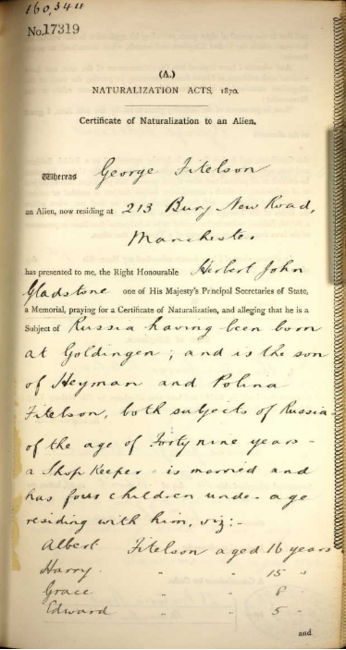 160,344
No.17319
(A.)
NATURALIZATION ACTS, 1870.
Certificate of Naturalization to an Alien.
Whereas George Fitelson
an Alien, now residing at 213 Bury New Road,
Manchester
has presented to me, the Right Honourable Herbert John
Gladstone one of His Majesty's Principal Secretaries of State,
a Memorial, praying for a Certificate of Naturalization, and alleging that he is a
Subject of Russia having been born
at Goldingen; and is the son
of Heyman and Polina
Fitelson, both subjects of Russia-
of the age of Forty nine years -
a Shop Keeper - is married and
has four children under age
residing with him, viz:-
Albert Fitelson aged 16 years
Harry " " 15 "
Grace " " 8 "
Edward " " 5 "
and